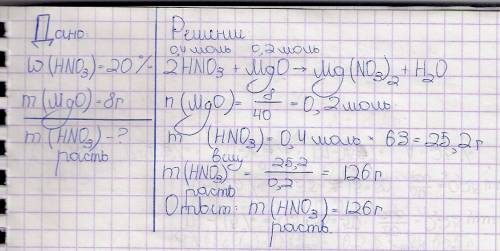 Дано:
ω(HNO₃)=20%
m(MgO)=8г
m(HNO₃)-?
раств
Решение
0,4моль 0,2моль
2HNO₃+MgO→Mg(NO₃)₂+H₂O
n(MgO)=8/40=0,2моль
m (HNO₃)=0,4моль·63=25,2г
в-ва
m(HNO₃)=25,2/0,2=126г
раств
Ответ: m(HNO₃)=126г
раств.